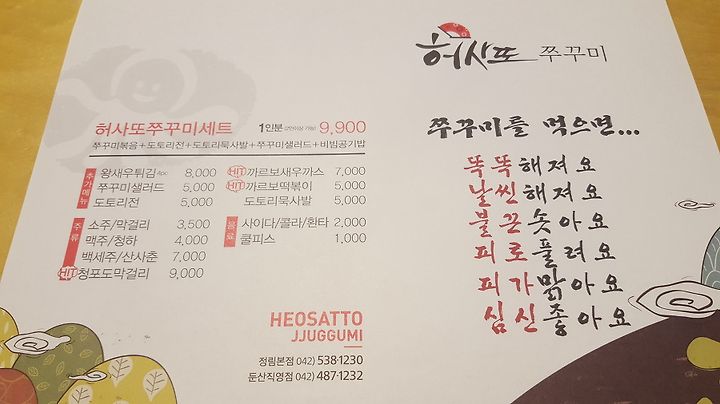 허사또쭈꾸미세트 1인분 (2인이상 가능) 9,900
쭈꾸미볶음+도토리전+도토리묵사발+쭈꾸미샐러드+비빔공기밥
추가메뉴
왕새우튀김 4pc 8,000
쭈꾸미샐러드 5,000
도토리전 5,000
HIT 까르보새우까스 7,000
HIT 까르보떡볶이 5,000
도토리묵사발 5,000
주류
소주/막걸리 3,500
맥주/청하 4,000
백세주/산사춘 7,000
HIT 청포도막걸리 9,000
음료
사이다/콜라/환타 2,000
쿨피스 1,000
HEOSATTO
JJUGGUMI
정림본점 (042) 538·1230
둔산직영점 (042) 487·1232
허사또 쭈꾸미
쭈꾸미를 먹으면...
똑똑해져요
날씬해져요
불끈솟아요
피로풀려요
피가맑아요
심신좋아요